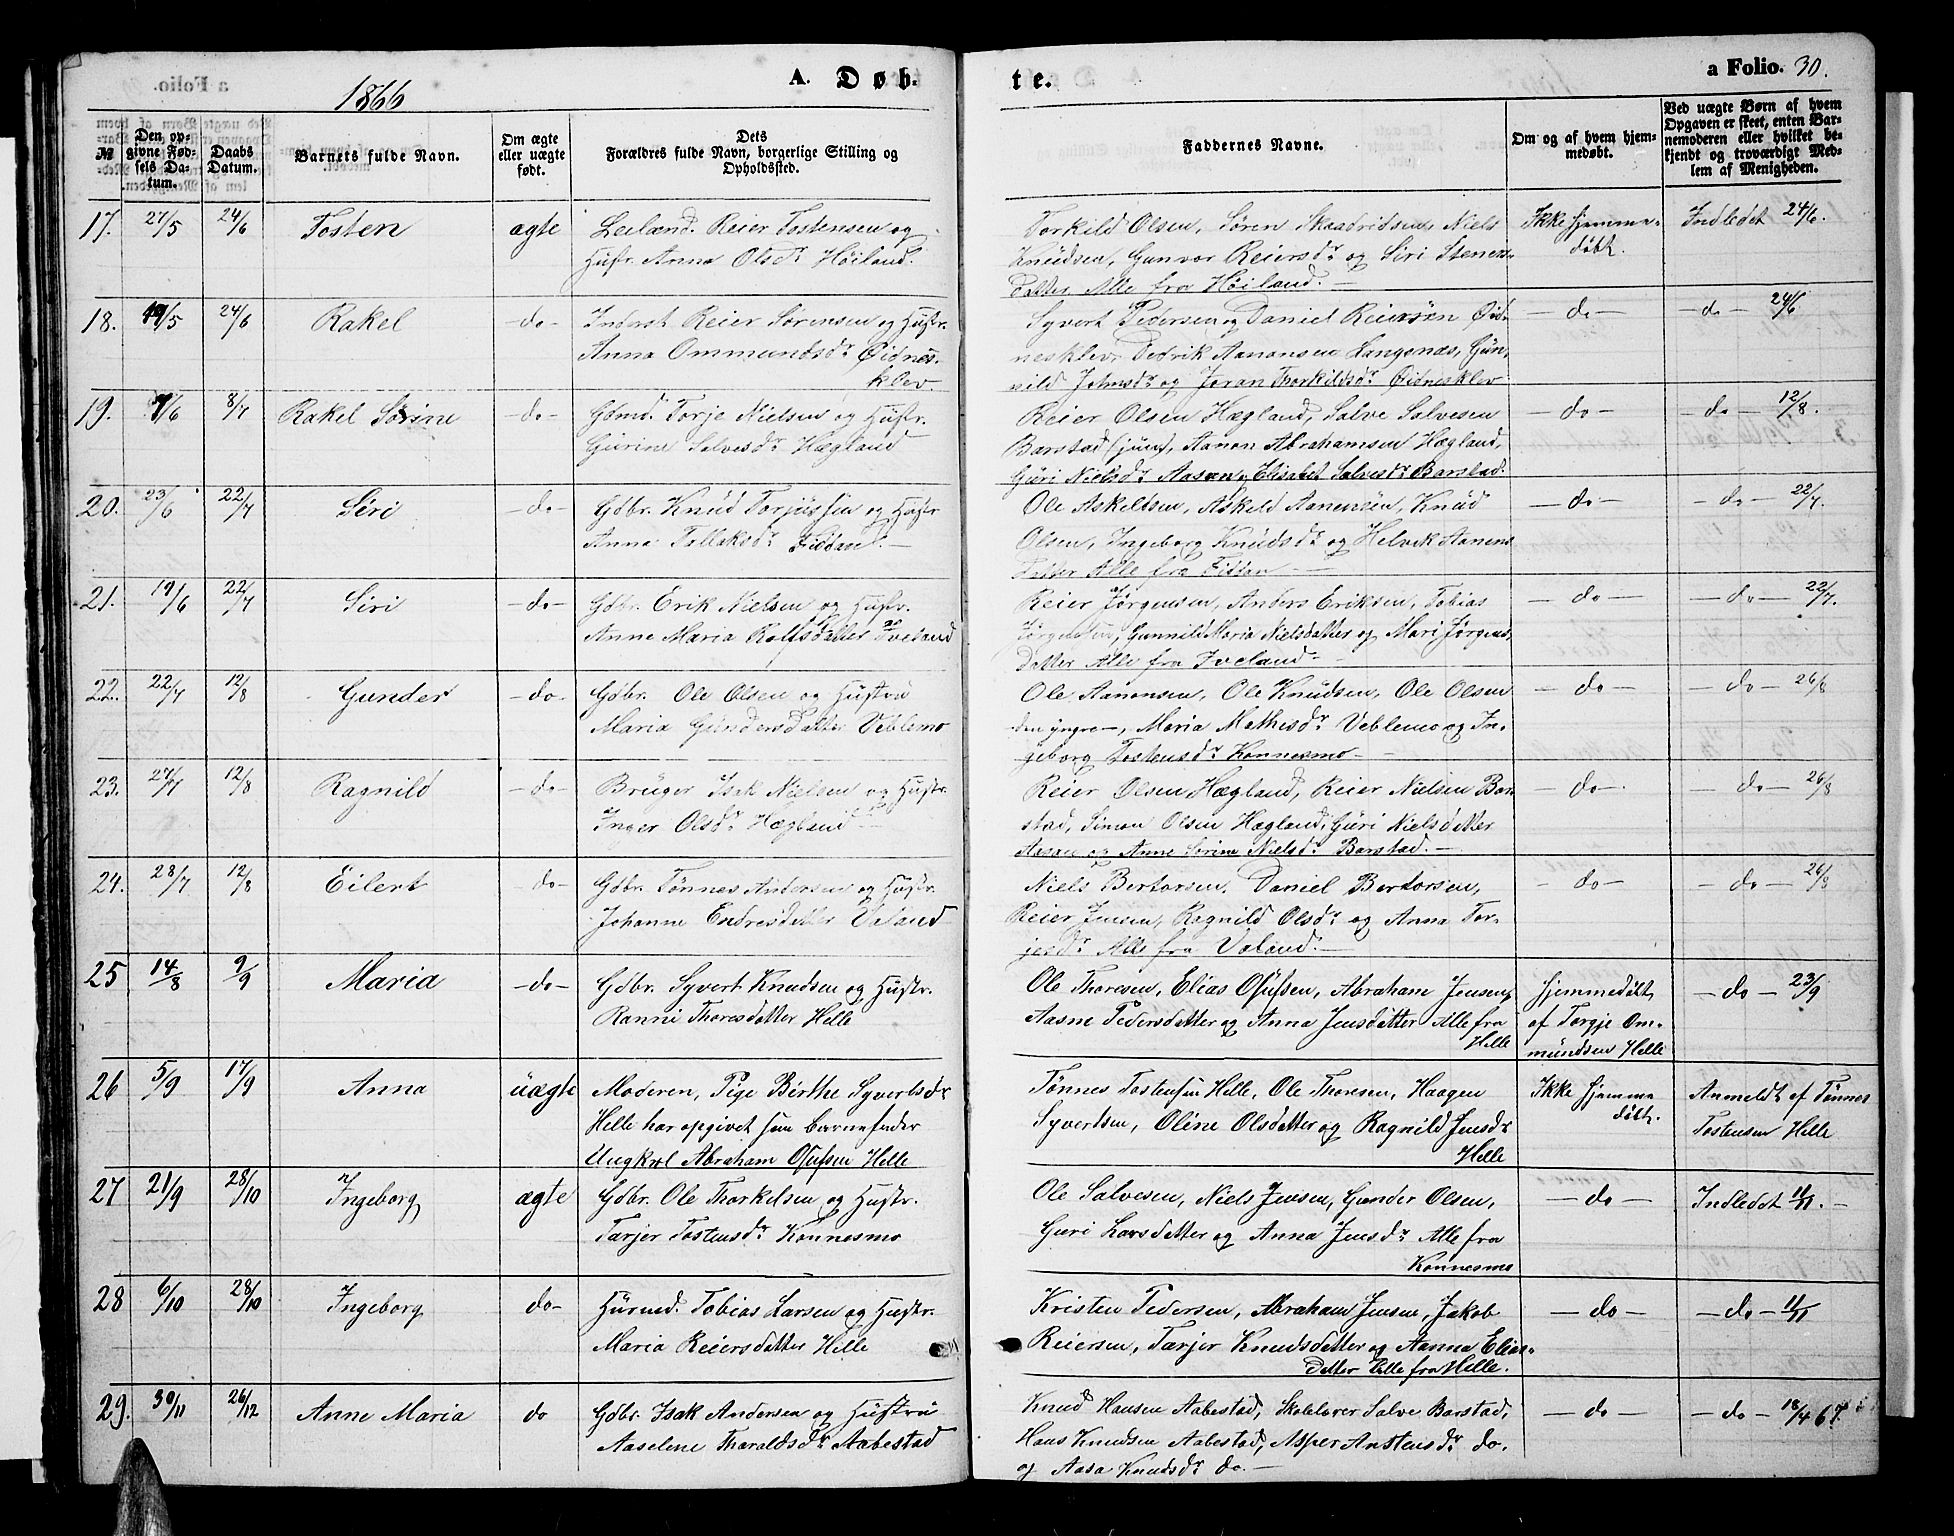 1866
A. Døb-
te.
a Folio. 30.
№
Den op-
givne Fød-
sels Da-
tum.
Daabs
Datum.
Barnets fulde Navn.
Om ægte
eller uægte
født.
Dets
Forældres fulde Navn, borgerlige Stilling og
Opholdssted.
Faddernes Navne.
Om og af hvem hjem-
medøbt.
Ved uægte Børn af hvem
Opgaven er skeet, enten Bar-
nemoderen eller hvilket be-
kjendt og troværdigt Med-
lem af Menigheden.
17. 27/5 24/6 Tosten ægte
Leiland. Reier Tostensen og
Hufr. Anna Olsdr Höiland.
Torkild Olsen, Sören Skaadridsen, Niels
Knudsen, Gunvor Reiersdr og Siri Steners-
datter Alle fra Höiland. —
Ikke hjemme-
döbt.
Indledet 24/6.
18. 19/5 24/6 Rakel —do—
Inderst Reier Sörensen og Hustr.
Anna Ommundsdr Öidnes-
klev.
Syvert Pedersen og Daniel Reiersön Öid-
nesklev, Didrik Aanonsen Langenæs, Gün-
vild Johnsdr og Joran Thorkildsdr Öidnesklev
— do — — do — 24/6
19. 7/6 8/7 Rakel Sörine —do—
Gdmd. Torje Nielsen og Hustr.
Gurine Salvesdr Hægland
Reier Olsen Hægland, Salve Salvesen
Barstad (jun), Aanon Abrahamsen Hægland,
Güri Nielsdr Aasen og Elisabet Salvesdr Barstad.
— do — — do — 12/8.
20. 23/6 22/7 Siri —do—
Gdbr. Knud Torjussen og Hustr
Anna Tellaksdr Fiddan. —
Ole Askeldsen, Askeld Aanensön, Knud
Olsen, Ingeborg Knudsdr og Helvik Aanens
datter Alle fra Fiddan —
— do — — do — 22/7.
21. 19/6 22/7 Siri —do—
Gdbr. Erik Nielsen og Hustr.
Anne Maria Rolfsdatter Iveland
Reier Jörgensen, Anders Eriksen, Tobias
Jörgensen, Gunnild Maria Nielsdatter og Mari Jörgens
datter Alle fra Iveland —
— do — — do — 22/7.
22. 22/7 12/8 Gunder —do—
Gdbr. Ole Olsen og Hustru
Maria Gundersdatter Veblemo
Ole Aanonsen, Ole Knudsen, Ole Olsen
den yngre —, Maria Mathisdr Veblemo og In-
geborg Tostensdr Konnesmo —
— do — — do — 26/8
23. 27/7 12/8 Ragnild —do—
Brüger Isak Nielsen og Hustr.
Inger Olsdr Hægland —
Reier Olsen Hægland, Reier Nielsen Bar-
stad, Simon Olsen Hægland, Güri Nielsdatter
Aasen og Anne Sörine Nielsdr Barstad. —
— do — — do — 26/8
24. 28/7 12/8 Eilert —do—
Gdbr. Tönnes Andersen og Hustr.
Johanne Endresdatter Valand
Niels Bertorsen, Daniel Bertorsen,
Reier Jensen, Ragnild Olsdr og Anna Tor-
jesdr Alle fra Valand —
— do — — do — 26/8
25 14/8 9/9 Maria —do—
Gdbr. Syvert Knudsen og Hustr.
Ranni Thoresdatter Helle
Ole Thoresen, Elias Osufsen, Abraham Jensen,
Aasne Pedersdatter og Anna Jensdatter Alle fra
Helle
Hjemmedöbt
af Torgje Om-
mundsen Helle
— do — 23/9
26 5/9 17/9 Anna uægte
Moderen, Pige Birthe Syvertsdr
Helle har opgivet som barnefader
Ungkrl Abraham Osufsen Helle
Tönnes Tostensen Helle, Ole Thoresen, Haagen
Syvertsen, Oline Olsdatter og Ragnild Jensdr
Helle
Ikke hjemme
döbt.
Anmeldt af Tönnes
Tostensen Helle
27 21/9 28/10 Ingeborg ægte
Gdbr. Ole Thorkelsen og Hustr.
Tarjer Tostensdr Konnesmo
Ole Salvesen, Niels Jensen, Gunder Olsen,
Guri Larsdatter og Anna Jensdr Alle fra
Konnesmo
— do — Indledet 11/11. —
28 6/10 28/10 Ingeborg do—
Hürmd. Tobias Larsen og Hustr.
Maria Reiersdatter Helle
Kristen Pedersen, Abraham Jensen, Jakob
Reiersen, Tarjer Knudsdatter og Aanna Elias-
datter Alle fra Helle.
— do — — do — 11/11
29. 30/11 26/12 Anne Maria do
Gdbr. Isak Andersen og Hustru
Aaselene Tharaldsdr Aabestad
Knud Hansen Aabestad, Skolelærer Salve Barstad,
Hans Knudsen Aabestad, Asper Anstensdr do.
og Aasa Knudsdr do. —
— do — — do — 18/4 67.